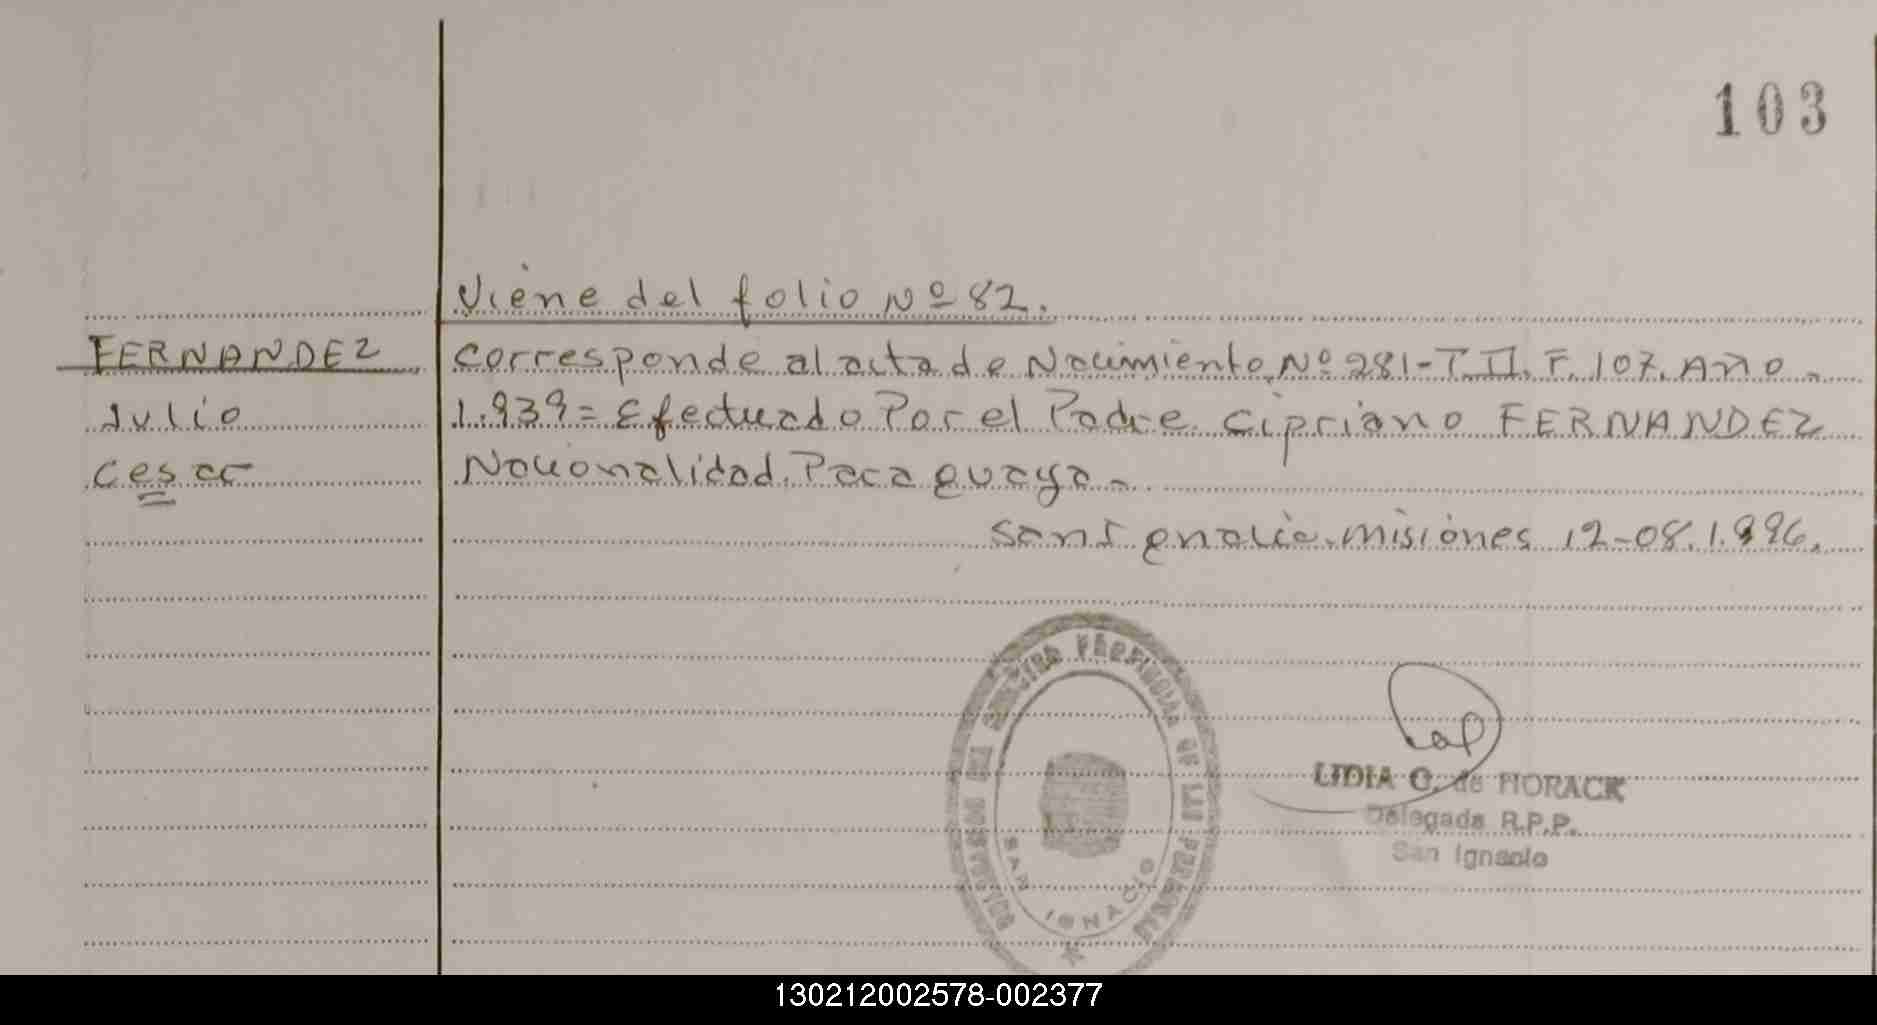 103
Viene del folio Nº 82.
FERNANDEZ
Julio
Cesar
Corresponde al acta de Nacimiento. Nº 281-T.II. F. 107. Año -
1.939 = Efectuado Por el Padre Cipriano FERNANDEZ
Nacionalidad. Paraguaya -
San Ignacio. misiones 12-08.1.996.
REGISTRO PROVINCIAL DE LAS PERSONAS
SAN IGNACIO
LIDIA G. de HORACK
Delegada R.P.P.
San Ignacio
130212002578-002377